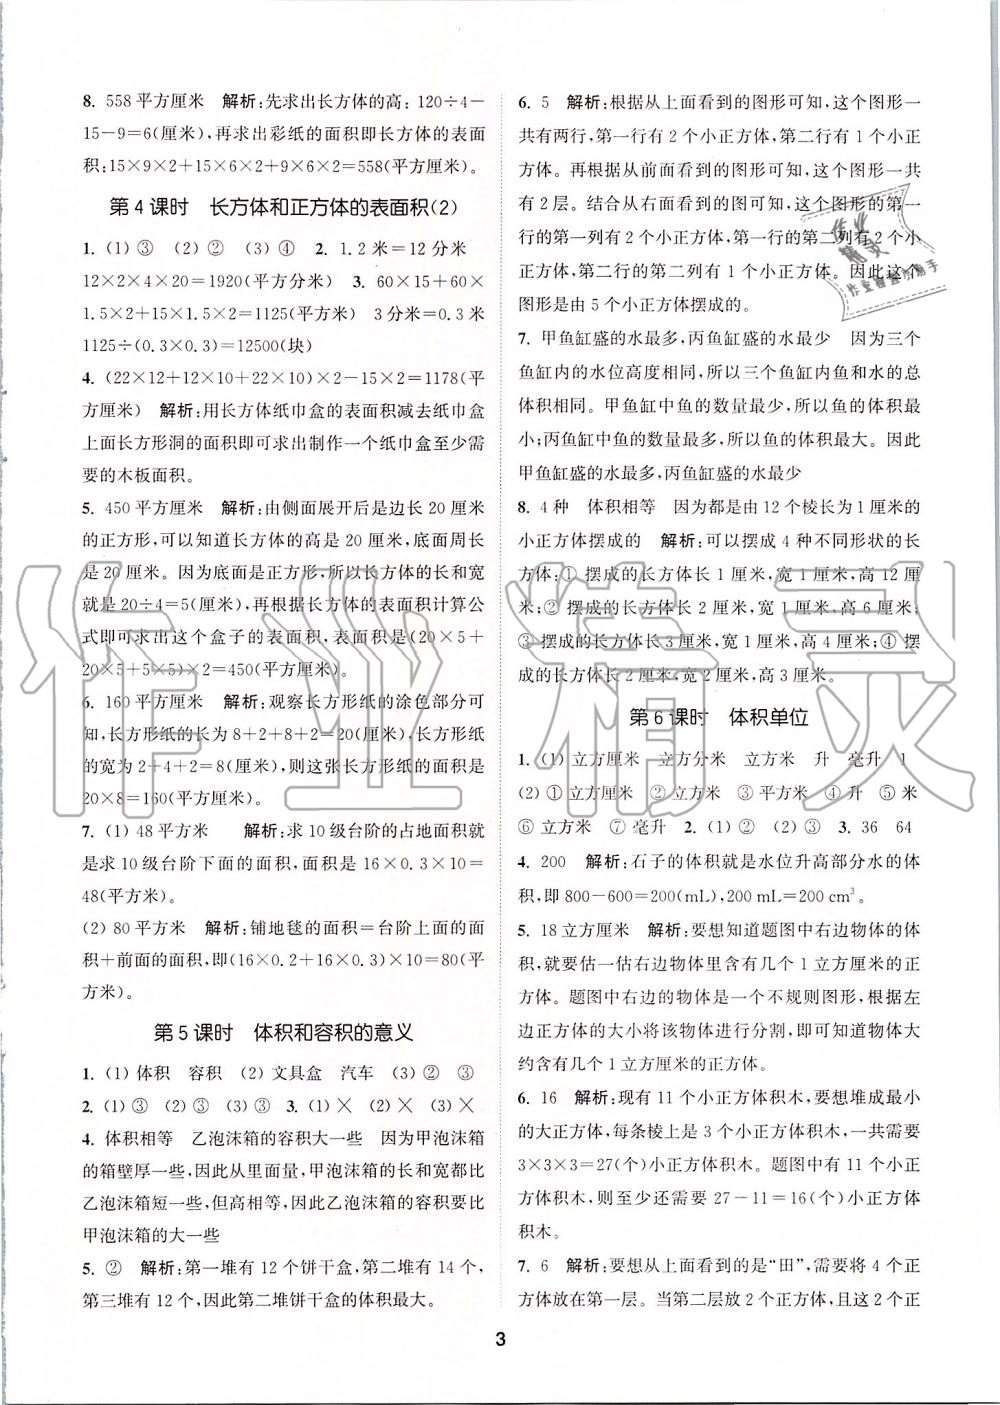 8. 558平方厘米　解析:先求出长方体的高:120÷4-
15-9=6(厘米),再求出彩纸的面积即长方体的表面
积:15×9×2+15×6×2+9×6×2=558(平方厘米)。
第4课时　长方体和正方体的表面积(2)
1. (1) ③　(2) ②　(3) ④　2. 1.2米=12分米
12×2×4×20=1920(平方分米)　3. 60×15+60×
1.5×2+15×1.5×2=1125(平方米)　3分米=0.3米
1125÷(0.3×0.3)=12500(块)
4. (22×12+12×10+22×10)×2-15×2=1178(平
方厘米)　解析:用长方体纸巾盒的表面积减去纸巾盒
上面长方形洞的面积即可求出制作一个纸巾盒至少需
要的木板面积。
5. 450平方厘米　解析:由侧面展开后是边长20厘米
的正方形,可以知道长方体的高是20厘米,底面周长
是20厘米。因为底面是正方形,所以长方体的长和宽
就是20÷4=5(厘米),再根据长方体的表面积计算公
式即可求出这个盒子的表面积,表面积是(20×5+
20×5+5×5)×2=450(平方厘米)。
6. 160平方厘米　解析:观察长方形纸的涂色部分可
知,长方形纸的长为8+2+8+2=20(厘米),长方形纸
的宽为2+4+2=8(厘米),则这张长方形纸的面积是
20×8=160(平方厘米)。
7. (1) 48平方米　解析:求10级台阶的占地面积就
是求10级台阶下面的面积,面积是16×0.3×10=
48(平方米)。
(2) 80平方米　解析:铺地毯的面积=台阶上面的面
积+前面的面积,即(16×0.2+16×0.3)×10=80(平
方米)。
第5课时　体积和容积的意义
1. (1) 体积　容积　(2) 文具盒　汽车　(3) ②　③
2. (1) ③　(2) ③　(3) ③　3. (1) ×　(2) ×　(3) ×
4. 体积相等　乙泡沫箱的容积大一些　因为甲泡沫箱
的箱壁厚一些,因此从里面量,甲泡沫箱的长和宽都比
乙泡沫箱短一些,但高相等,因此乙泡沫箱的容积要比
甲泡沫箱的大一些
5. ②　解析:第一堆有12个饼干盒,第二堆有14个,
第三堆有12个,因此第二堆饼干盒的体积最大。
6. 5　解析:根据从上面看到的图形可知,这个图形一
共有两行,第一行有2个小正方体,第二行有1个小正
方体。再根据从前面看到的图形可知,这个图形一共
有2层。结合从右面看到的图形可知,这个图形的第一
行的第一列有2个小正方体,第一行的第二列有2个小
正方体,第二行的第二列有1个小正方体。因此这个
图形是由5个小正方体摆成的。
7. 甲鱼缸盛的水最多,丙鱼缸盛的水最少　因为三个
鱼缸内的水位高度相同,所以三个鱼缸内鱼和水的总
体积相同。甲鱼缸中鱼的数量最少,所以鱼的体积最
小;丙鱼缸中鱼的数量最多,所以鱼的体积最大。因此
甲鱼缸盛的水最多,丙鱼缸盛的水最少
8. 4种　体积相等　因为都是由12个棱长为1厘米的
小正方体摆成的　解析:可以摆成4种不同形状的长
方体:① 摆成的长方体长1厘米,宽1厘米,高12厘
米;② 摆成的长方体长2厘米,宽1厘米,高6厘米;
③ 摆成的长方体长3厘米,宽1厘米,高4厘米;④ 摆
成的长方体长2厘米,宽2厘米,高3厘米。
第6课时　体积单位
1. (1) 立方厘米　立方分米　立方米　升　毫升　1
(2) ① 立方厘米　② 立方分米　③ 平方米　④ 升　⑤ 米
⑥ 立方米　⑦ 毫升　2. (1) ②　(2) ③　3. 36　64
4. 200　解析:石子的体积就是水位升高部分水的体
积,即800-600=200(mL),200 mL=200 cm³。
5. 18立方厘米　解析:要想知道题图中右边物体的体
积,就要估一估右边物体里含有几个1立方厘米的正
方体。题图中右边的物体是一个不规则图形,根据左
边正方体的大小将该物体进行分割,即可知道物体大
约含有几个1立方厘米的正方体。
6. 16　解析:现有11个小正方体积木,要想堆成最小
的大正方体,每条棱上是3个小正方体积木,一共需要
3×3×3=27(个)小正方体积木。题图中有11个小正
方体积木,则至少还需要27-11=16(个)小正方体
积木。
7. 6　解析:要想从上面看到的是“田”,需要将4个正
方体放在第一层。当第二层放2个正方体,且这2个正
3
作业精灵
作业精灵